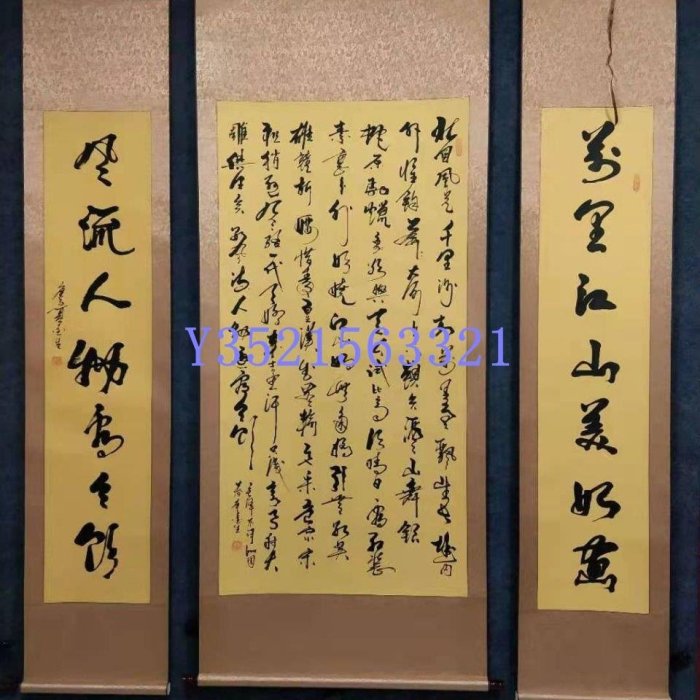 萬里江山美如畫
北国风光千里冰封万里雪飘望长城内
外惟余莽莽大河上下顿失滔滔山舞银
蛇原驰蜡象欲与天公试比高须晴日看红装
素裹分外妖娆江山如此多娇引无数英
雄竞折腰惜秦皇汉武略输文采唐宗宋
祖稍逊风骚一代天骄成吉思汗只识弯弓射大
雕俱往矣数风流人物还看今朝
毛泽东词沁园
春雪
风流人物看今朝
Y3521563321